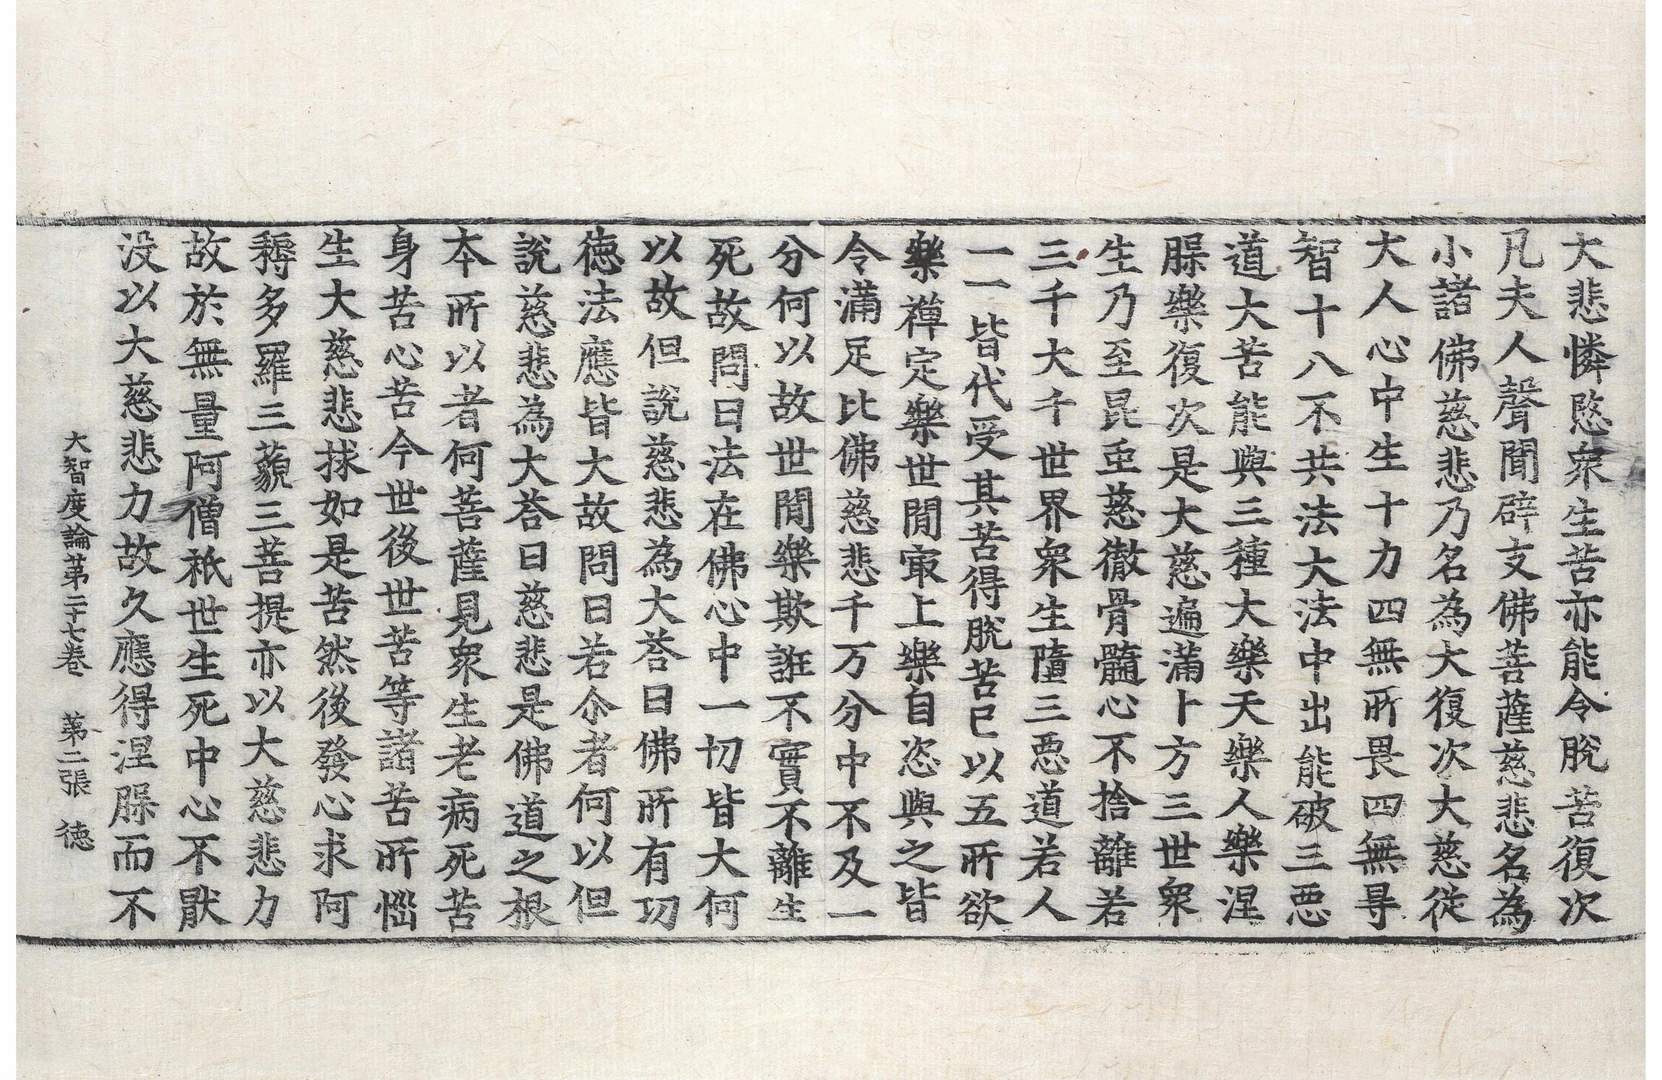 大悲憐愍衆生苦亦能令脫苦復次
凡夫人聲聞辟支佛菩薩慈悲名為
小諸佛慈悲乃名為大復次大慈從
大人心中生十力四無所畏四無㝵
智十八不共法大法中出能破三惡
道大苦能與三種大樂天樂人樂涅
槃樂復次是大慈遍滿十方三世衆
生乃至昆虫慈徹骨髓心不捨離若
三千大千世界衆生墮三惡道若人
一一皆代受其苦得脫苦已以五所欲
樂禪定樂世閒㝡上樂自恣與之皆
令滿足比佛慈悲千万分中不及一
分何以故世閒樂欺誑不實不離生
死故問曰法在佛心中一切皆大何
以故但說慈悲為大荅曰佛所有功
德法應皆大故問曰若尒者何以但
說慈悲為大荅曰慈悲是佛道之根
本所以者何菩薩見衆生老病死苦
身苦心苦今世後世苦等諸苦所惱
生大慈悲救如是苦然後發心求阿
耨多羅三藐三菩提亦以大慈悲力
故於無量阿僧祇世生死中心不厭
没以大慈悲力故久應得涅槃而不
大智度論第二十七卷 第二張 德